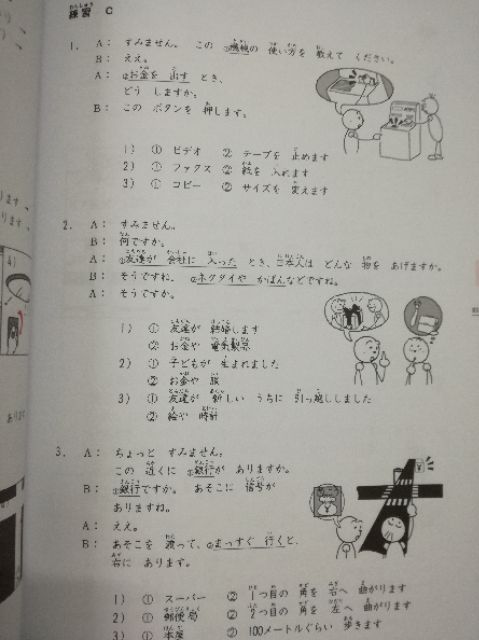 練習 C
1. A： すみません。 この ①機械の 使い方を 教えて ください。
B： ええ。
A： ②お金を 出す とき、
どう しますか。
B： この ボタンを 押します。
1） ① ビデオ ② テープを 止めます
2） ① ファクス ② 紙を 入れます
3） ① コピー ② サイズを 変えます
2. A： すみません。
B： 何ですか。
A： ①友達が 会社に 入った とき、日本人は どんな 物を あげますか。
B： そうですね、 ②ネクタイや かばんなどですね。
A： そうですか。
1） ① 友達が 結婚します
② お金や 電気製品
2） ① 子どもが 生まれました
② お金や 服
3） ① 友達が 新しい うちに 引っ越ししました
② 絵や 時計
3. A： ちょっと すみません。
この 近くに ①銀行が ありますか。
B： ①銀行ですか。 あそこに 信号が
ありますね。
A： ええ。
B： あそこを 渡って、②まっすぐ 行くと、
右に あります。
1） ① スーパー ② 1つ目の 角を 右へ 曲がります
2） ① 郵便局 ② 2つ目の 角を 左へ 曲がります
3） ① 本屋 ② 100メートルぐらい 歩きます